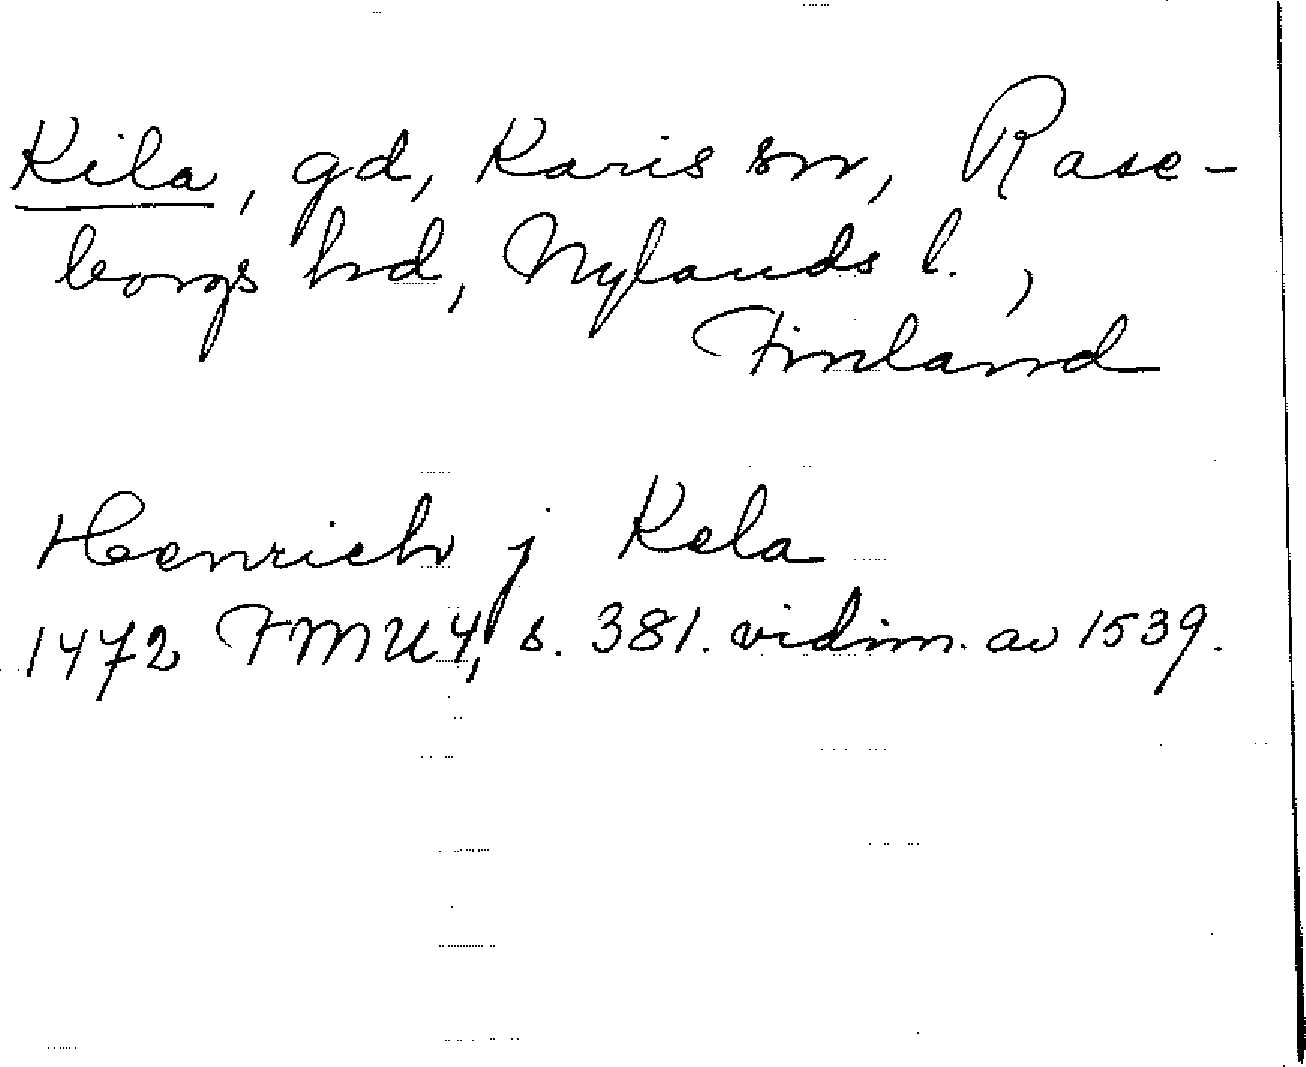 Kila, gd, Karis sn, Rase-
borgs hd, Nylands l.,
Finland
Henrich j Kela
1472 FMU 4, s. 381. vidim. av 1539.